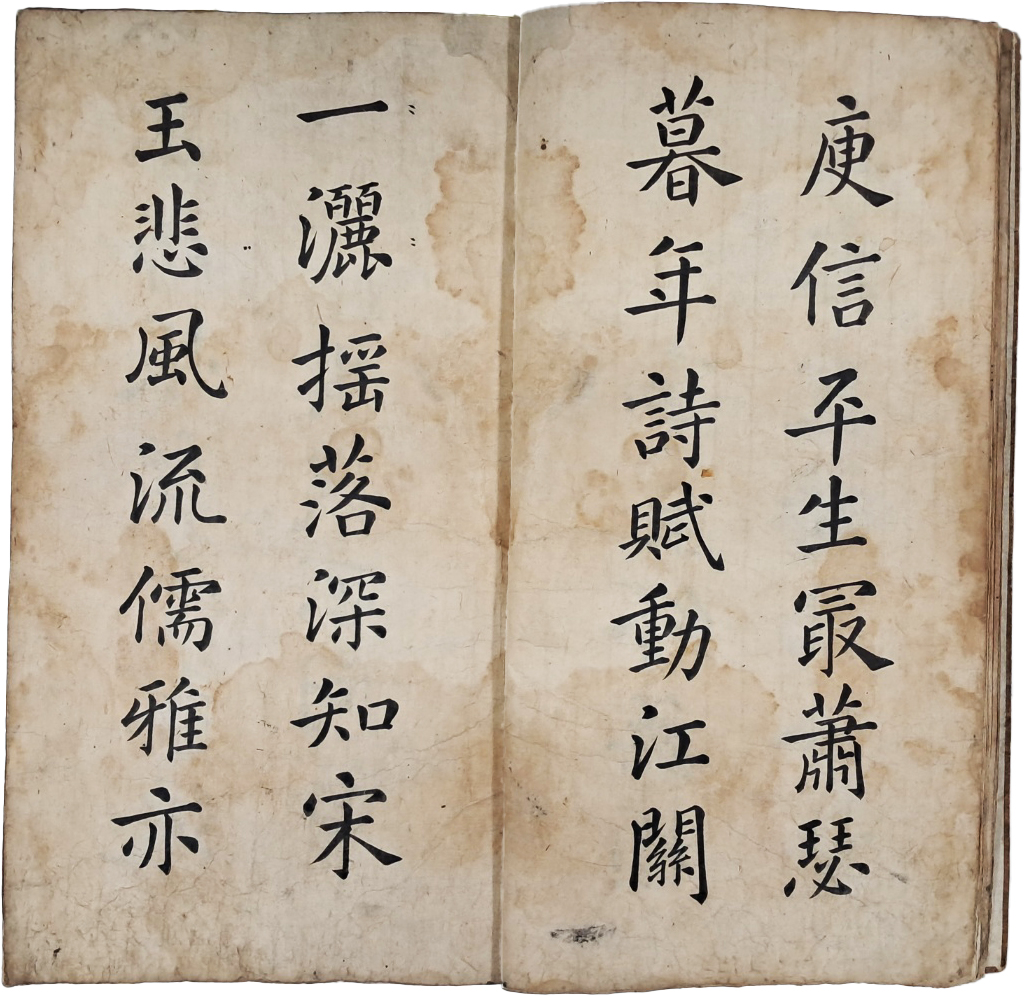 庾信平生最蕭瑟
暮年詩賦動江關
一灑摇落深知宋
玉悲風流儒雅亦